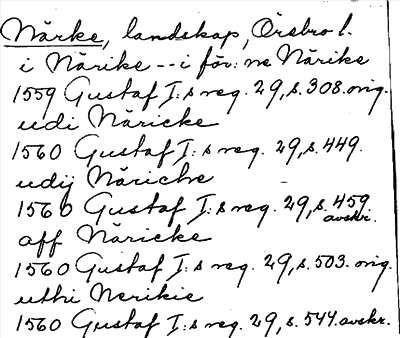 Närke, landskap, Örebro l.
i Närike -- i för: ne Närike
1559 Gustaf I:s reg. 29, s. 308. orig.
udi Näricke
1560 Gustaf I:s reg. 29, s. 449.
udij Näriche
1560 Gustaf I:s reg. 29, s. 459. avskr.
aff Näricke
1560 Gustaf I:s reg. 29, s. 503. orig.
uthi Nerikie
1560 Gustaf I:s reg. 29, s. 544. avskr.